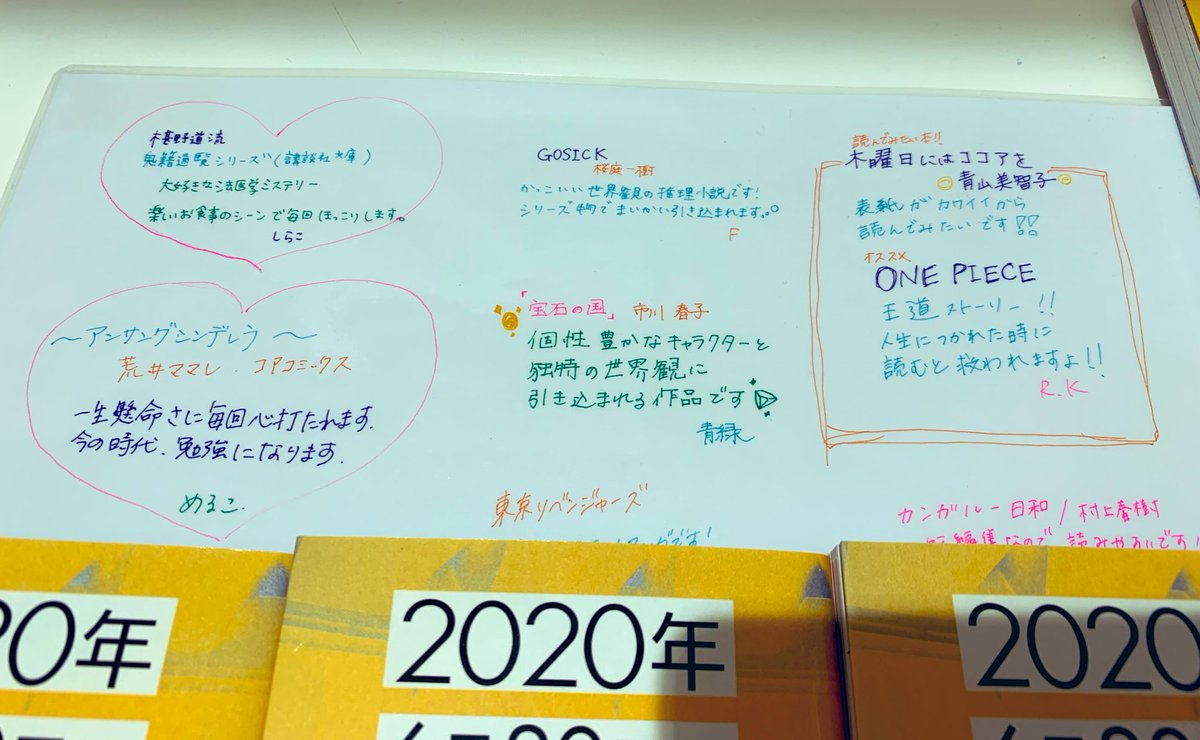 椹野道流
鬼籍通覧シリーズ(講談社文庫)
大好きな法医学ミステリー
楽しいお食事のシーンで毎回ほっこりします。
しらこ
〜アンサングシンデレラ〜
荒井ママレ.コアコミックス
一生懸命さに毎回心打たれます.
今の時代、勉強になります.
めるこ.
GOSICK
桜庭一樹
かっこいい世界観の推理小説です!
シリーズ物でまいかい引き込まれます。
F
「宝石の国」 市川 春子
個性豊かなキャラクターと
独特の世界観に
引き込まれる作品です
青緑
東京リベンジャーズ
です!
読んでみたい本!!
木曜日にはココアを
青山美智子
表紙がカワイイから
読んでみたいです!!
オススメ
ONE PIECE
王道ストーリー!!
人生につかれた時に
読むと救われますよ!!
R.K
カンガルー日和/村上春樹
短編集なので読みやすいです!
20年
2020年
2020